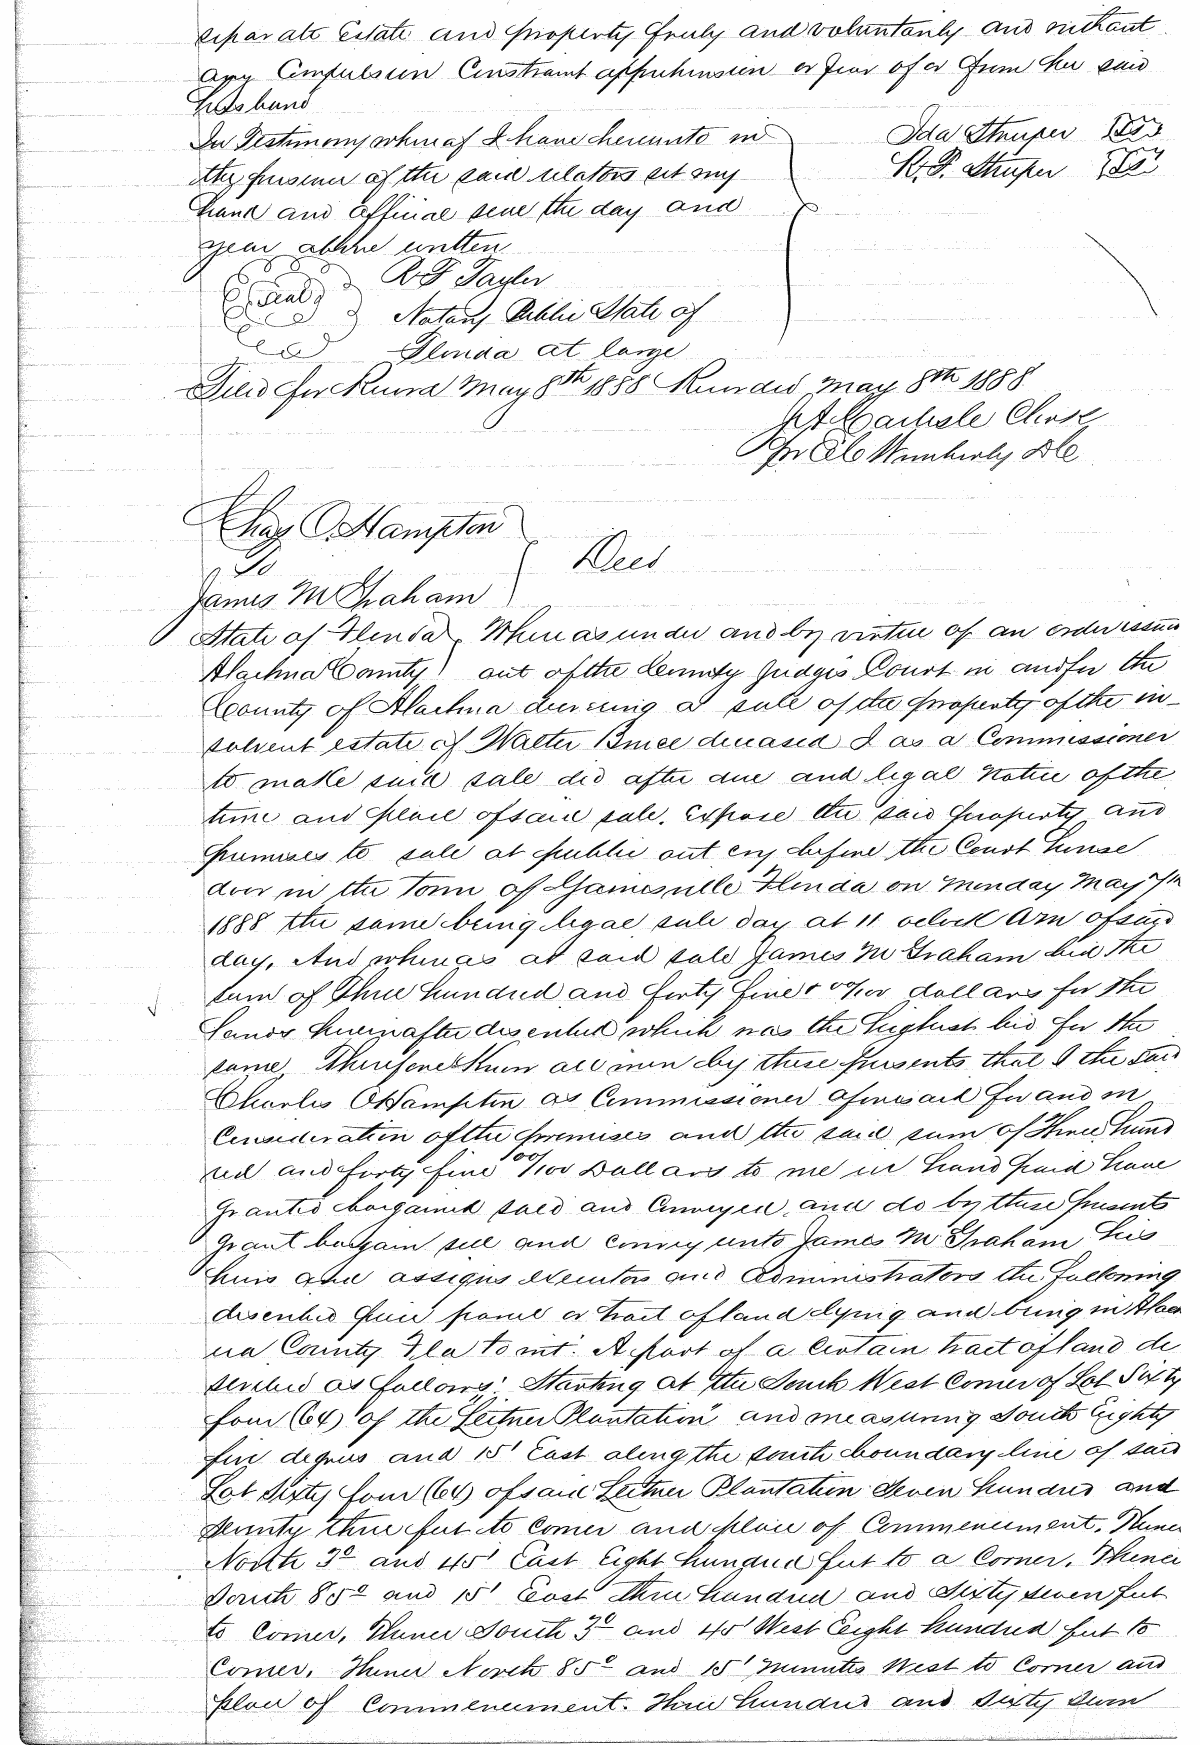 separate Estate and property freely and voluntarily and without
any Compulsion Constraint apprehension or fear of or from her said
husband
In Testimony whereof I have hereunto in
the presence of the said relators set my
hand and official seal the day and
year above written
Ida Struper
R. F. Struper
R F Tayler
(Seal)
Notary Public State of
Florida at large
Filed for Record May 8th 1888 Recorded May 8th 1888
Clerk
Wimberly DC
Chas O. Hampton
To
Deed
James M Graham
State of Florida, Whereas under and by virtue of an order issued
Alachua County) out of the County Judges Court in and for the
County of Alachua decreeing a sale of the property of the in-
solvent estate of Walter Bruce deceased I as a Commissioner
to make said sale did after due and legal Notice of the
time and place of said sale. Expose the said property and
premises to sale at public out cry before the Court house
door in the Town of Gainesville Florida on Monday May 7th
1888 the same being legal sale day at 11 oclock Am of said
day, And whereas at said sale James M Graham bid the
sum of Three hundred and forty five & 00/100 dollars for the
lands hereinafter described which was the highest bid for the
same, Therefore Know all men by these presents that I the said
Charles O Hampton as Commissioner aforesaid for and in
Consideration of the premises and the said sum of Three hund
red and forty five 00/100 Dollars to me in hand paid have
granted bargained sold and Conveyed and do by these presents
grant bargain sell and convey unto James M Graham his
heirs and assigns executors and administrators the following
described piece parcel or tract of land lying and being in Alach
ua County Fla to wit: A part of a certain tract of land de
scribed as follows; Starting at the South West Corner of Lot Sixty
four (64) of the "Leitner Plantation" and measuring South Eighty
five degrees and 15' East along the south boundary line of said
Lot Sixty four (64) of said Leitner Plantation Seven hundred and
seventy three feet to Corner and place of Commencement. Thence
North 3° and 45' East Eight hundred feet to a Corner. Thence
South 85° and 15' East three hundred and Sixty seven feet
to Corner, Thence South 3° and 45' West Eight hundred feet to
Corner. Thence North 85° and 15' Minutes West to Corner and
place of Commencement. Three hundred and sixty seven